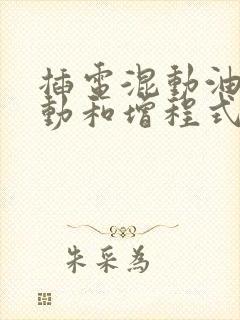 插電混動油
動和增程式
朱采為